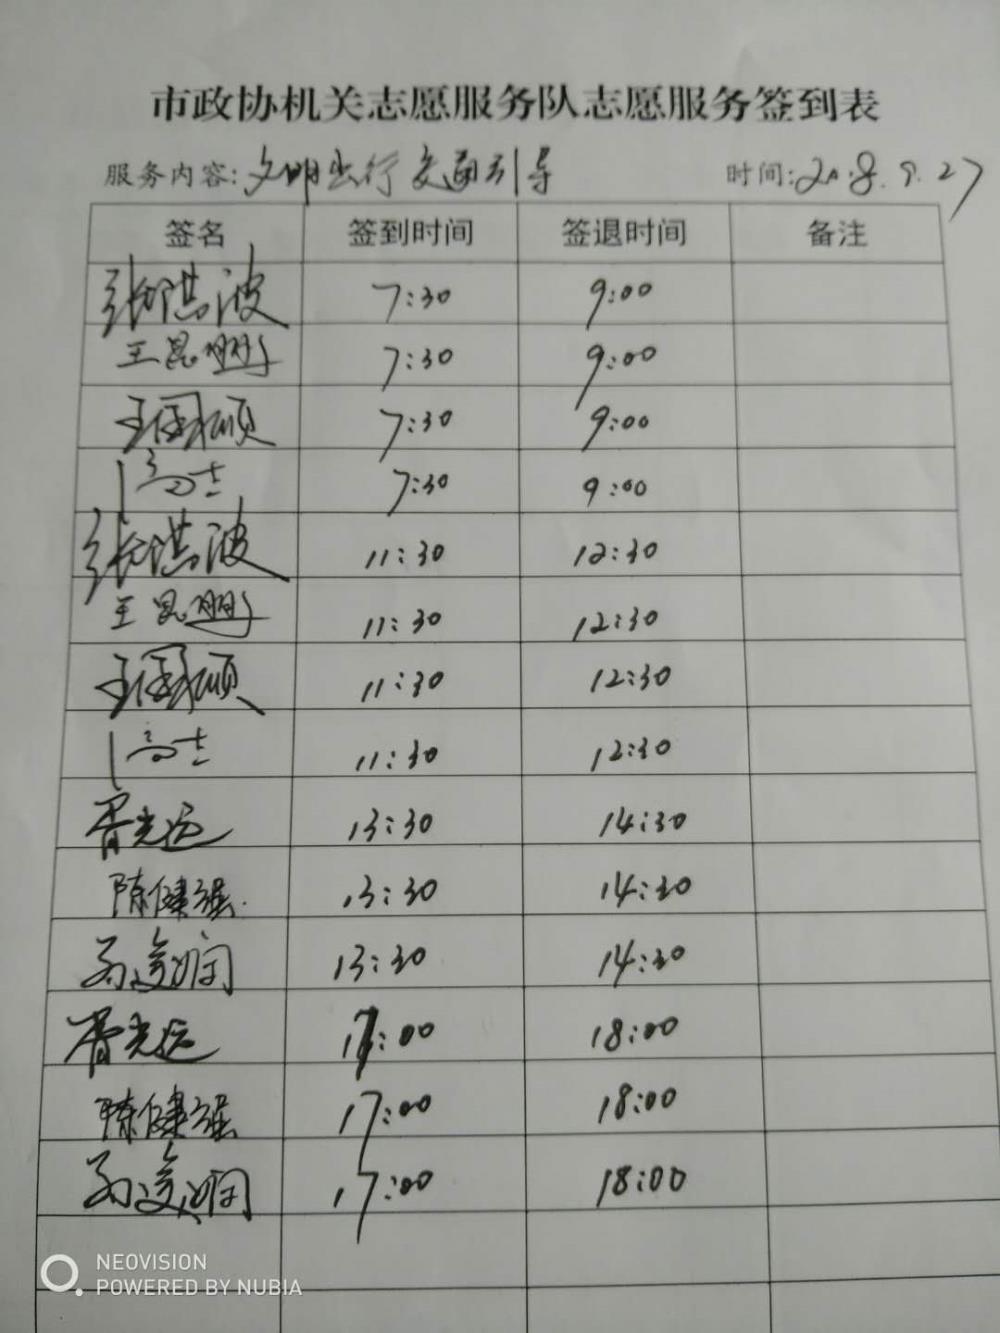 市政协机关志愿服务队志愿服务签到表
服务内容:文明出行交通引导 时间:2018.9.27
签名 签到时间 签退时间 备注
张洪波 7:30 9:00
王昆鹏 7:30 9:00
王国硕 7:30 9:00
7:30 9:00
张洪波 11:30 12:30
王昆鹏 11:30 12:30
王国硕 11:30 12:30
11:30 12:30
胥光远 13:30 14:30
陈健强 13:30 14:30
孙 13:30 14:30
胥光远 17:00 18:00
陈健强 17:00 18:00
孙 17:00 18:00
NEOVISION
POWERED BY NUBIA